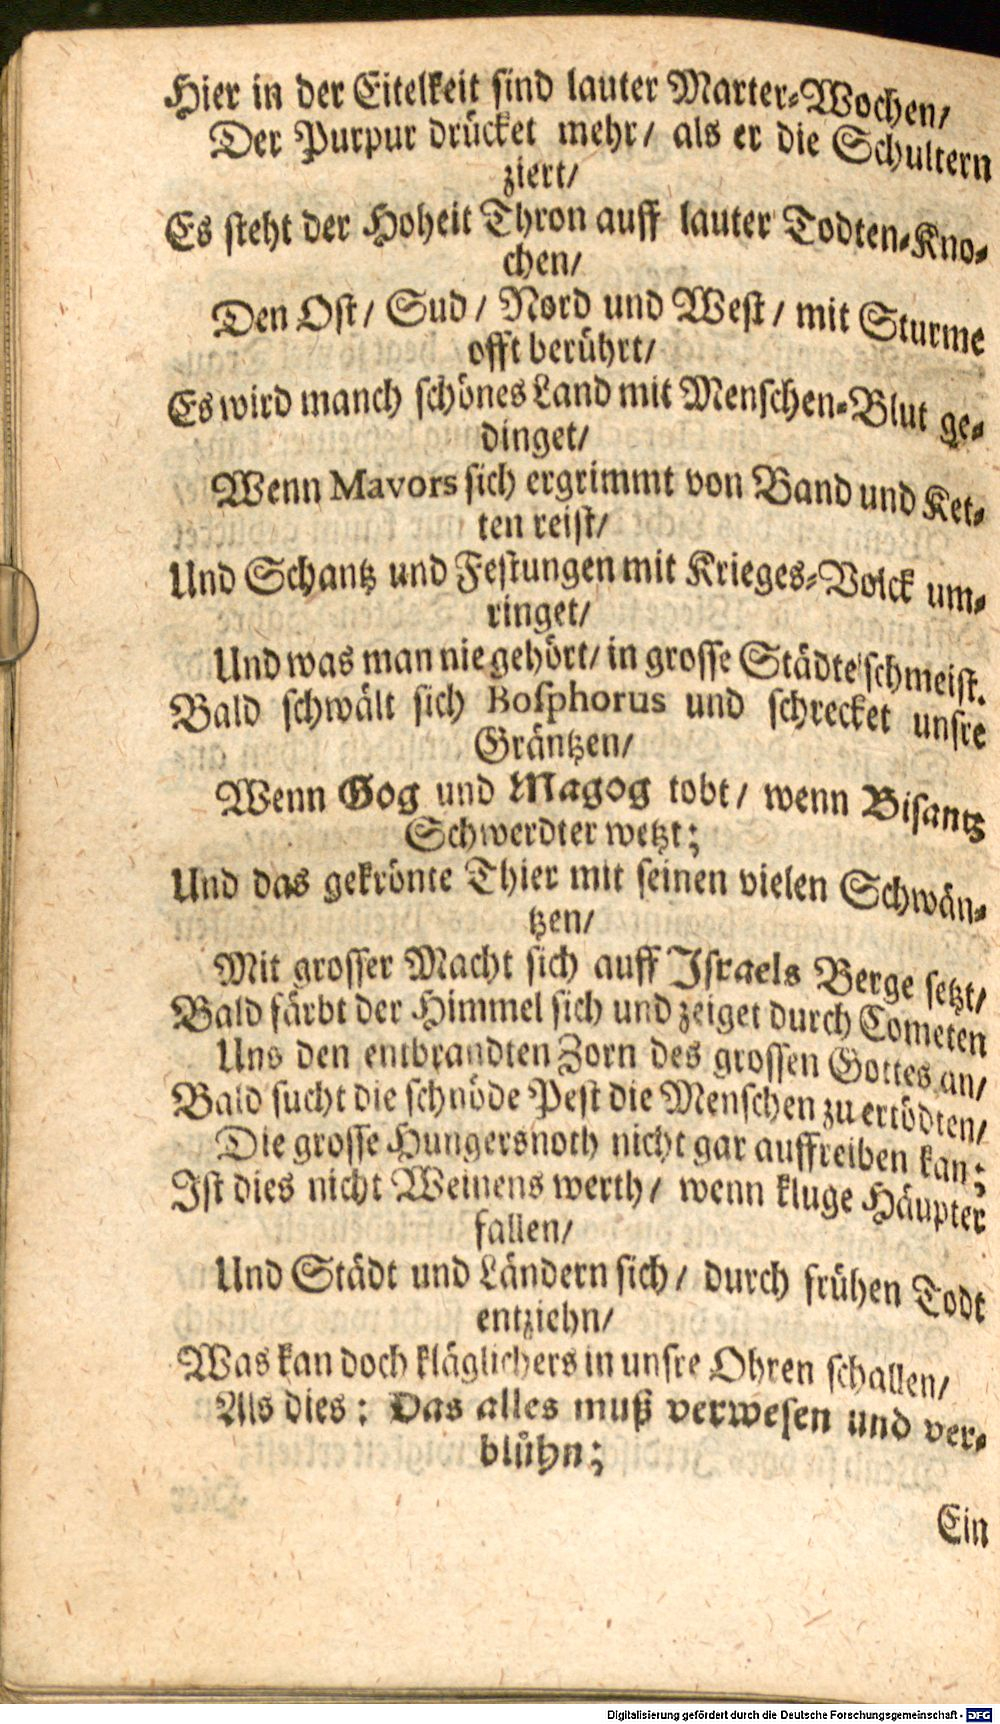 Hier in der Eitelkeit sind lauter Marter-Wochen/
Der Purpur drücket mehr/ als er die Schultern
ziert/
Es steht der Hoheit Thron auff lauter Todten-Kno-
chen/
Den Ost/ Sud/ Nord und West/ mit Sturme
offt berührt/
Es wird manch schönes Land mit Menschen-Blut ge-
dinget/
Wenn Mavors sich ergrimmt von Band und Ket-
ten reist/
Und Schantz und Festungen mit Krieges-Volck um-
ringet/
Und was man nie gehört/ in grosse Städte schmeist.
Bald schwält sich Bosphorus und schrecket unsre
Gräntzen/
Wenn Gog und Magog tobt/ wenn Bisantz
Schwerdter wetzt;
Und das gekrönte Thier mit seinen vielen Schwän-
tzen/
Mit grosser Macht sich auff Israels Berge setzt/
Bald färbt der Himmel sich und zeiget durch Cometen
Uns den entbrandten Zorn des grossen Gottes an/
Bald sucht die schnöde Pest die Menschen zu ertödten/
Die grosse Hungersnoth nicht gar auffreiben kan;
Ist dies nicht Weinens werth/ wenn kluge Häupter
fallen/
Und Städt und Ländern sich/ durch frühen Todt
entziehn/
Was kan doch kläglichers in unsre Ohren schallen/
Als dies: Das alles muß verwesen und ver-
blühn;
Ein
Digitalisierung gefördert durch die Deutsche Forschungsgemeinschaft - DFG